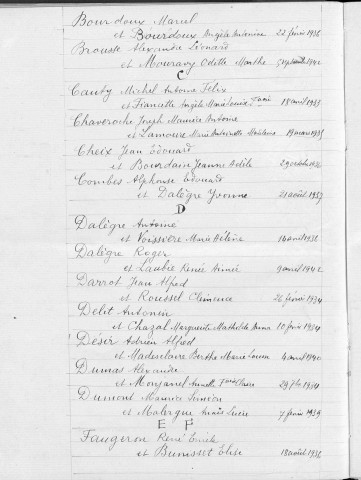 Bourdoux Marcel
et Bourdoux Angèle Antonine 22 février 1936
Brouste Alexandre Léonard
et Mouravy Odette Marthe
C
Cauty Michel Antoine Félix
et Angèle Marie Louise 18 avril 1933
Chaveroche Joseph Maurice Antoine
et Lamoure Marie Antoinette 19 mars 1935
Cheix Jean Edouard
et Bourdain Jeanne Adèle 29 octobre
Combes Alphonse Edouard
et Dalègre Yvonne 21 août 1937
D
Dalègre Antoine
et Voissière Marie Hélène 14 avril
Dalègre Roger
et Laubie Renée Aimée 9 avril
Darrot Jean Alfred
et Roussel Clémence 26 février 1934
Delit Antonin
et Chazal Marguerite Mathilde Anna 10 février 1934
Désir Adrien Alfred
et Madesclaire Berthe Marie Louise 4 avril 1940
Dumas Alexandre
et 29 1934
Dumont Maurice Simion
et Malergue Lucie 7 février 1939
E F
Faugeron René Emile
et Bunisset Elise 18 août